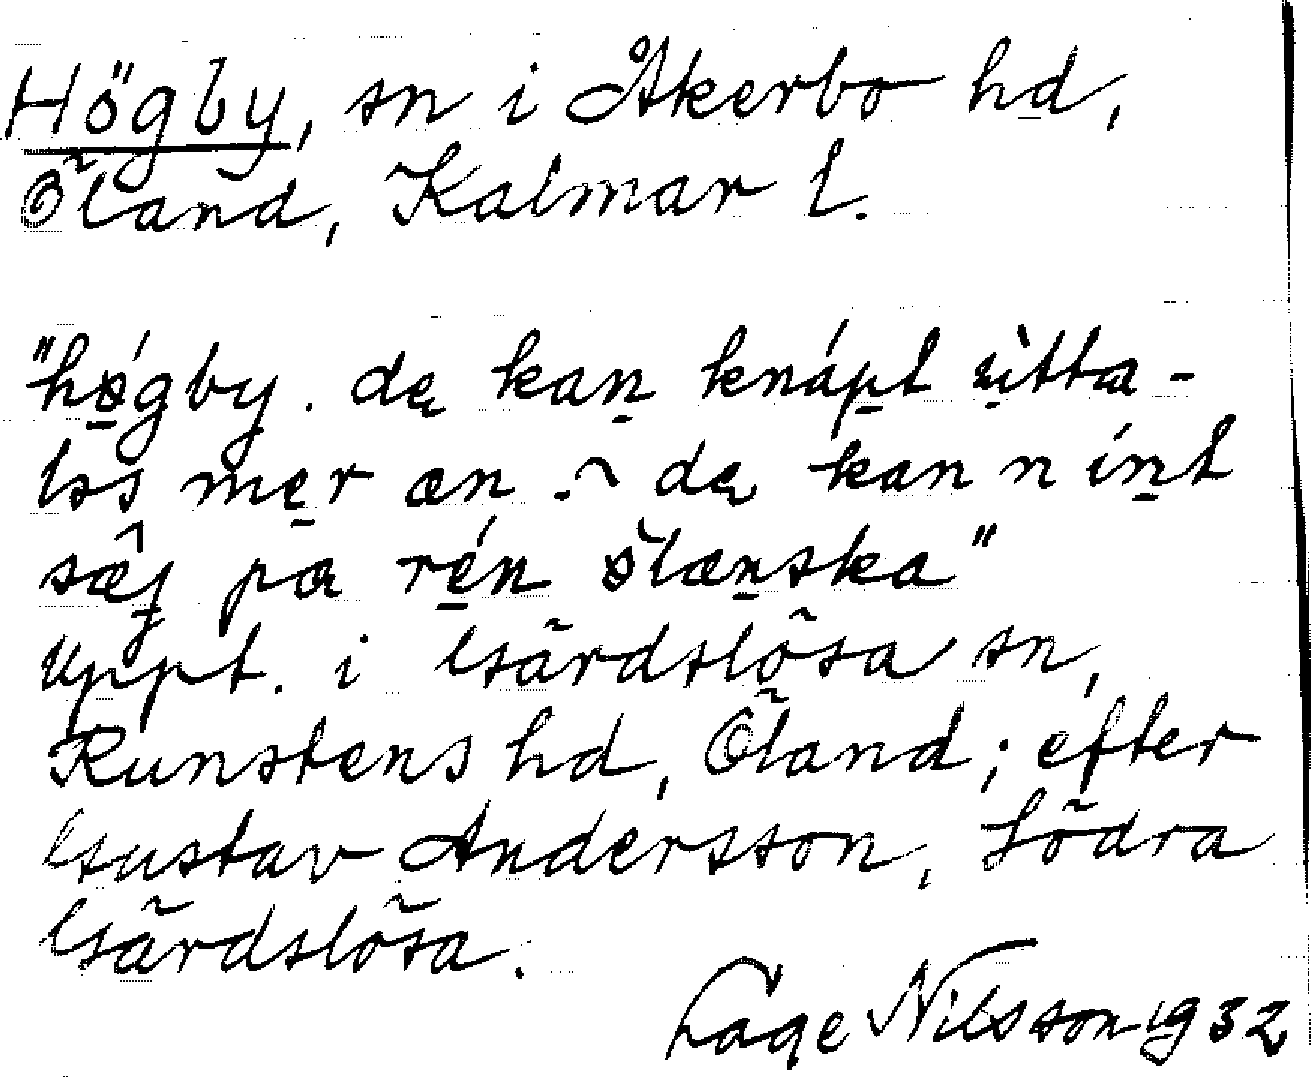 Högby, sn i Åkerbo hd,
Öland, Kalmar l.
"hǿgby. dę kan̠ knáp̠t ùtta-
ləs me̠r æn .~ dę kan n ín̠t
sæ̂j pa ré̠n ö̀læn̠ska"
uppt. i Gärdslösa sn,
Runstens hd, Öland; efter
Gustav Andersson, Södra
Gärdslösa.
Lage Nilsson 1932